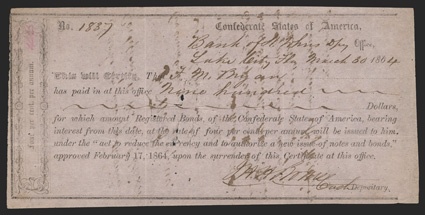 No. 1837 Confederate States of America.
Bank of Office,
Lake City, Fla March 30 1864
This will Certify, That
has paid in at this office Nine hundred
Dollars,
for which amount Registered Bonds, of the Confederate States of America, bearing
interest from this date, at the rate of four per cent per annum, will be issued to him,
under the "act to reduce the currency and to authorize a new issue of notes and bonds,"
approved February 17, 1864, upon the surrender of this Certificate at this office.
Cash Depositary.